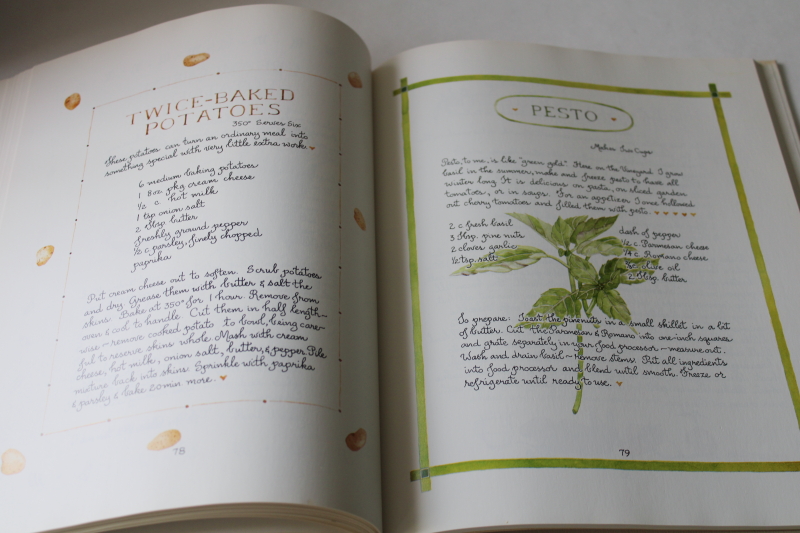 TWICE-BAKED
POTATOES
350° Serves Six
These potatoes can turn an ordinary meal into
something special with very little extra work.
6 medium baking potatoes
1 8 oz. pkg cream cheese
½ c. hot milk
1 tsp onion salt
2 Tbsp butter
freshly ground pepper
½ c parsley, finely chopped
paprika
Put cream cheese out to soften. Scrub potatoes
and dry. Grease them with butter & salt the
skins. Bake at 350° for 1 hour. Remove from
oven & cool to handle. Cut them in half length-
wise ~ remove cooked potato to bowl, being care-
ful to reserve skins whole. Mash with cream
cheese, hot milk, onion salt, butter, & pepper. Pile
mixture back into skins. Sprinkle with paprika
& parsley & bake 20 min more.
78
PESTO
Makes Two Cups
Pesto, to me, is like "green gold". Here on the Vineyard I grow
basil in the summer, make and freeze pesto to have all
winter long. It is delicious on pasta, on sliced garden
tomatoes, or in soups. For an appetizer I once hollowed
out cherry tomatoes and filled them with pesto.
2 c fresh basil
3 Tbsp. pine nuts
2 cloves garlic
½ tsp. salt
dash of pepper
½ c Parmesan cheese
¼ c Romano cheese
olive oil
2 Tbsp. butter
To prepare: Toast the pinenuts in a small skillet in a bit
of butter. Cut the Parmesan & Romano into one-inch squares
and grate separately in your food processor ~ measure out.
Wash and drain basil ~ remove stems. Put all ingredients
into food processor and blend until smooth. Freeze or
refrigerate until ready to use.
79